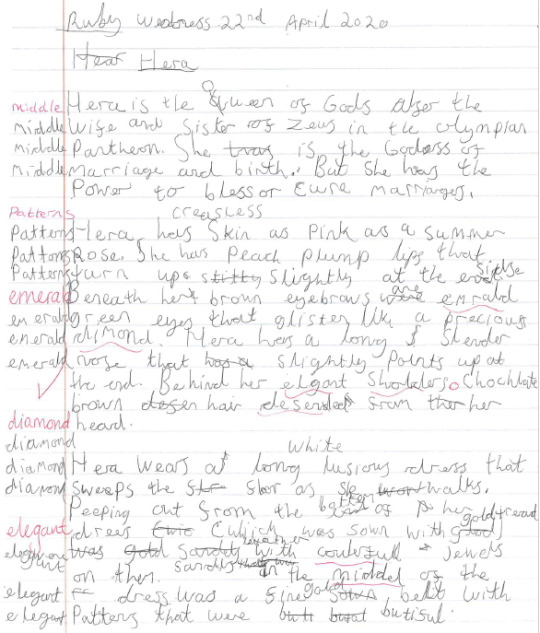 Ruby Wedness 22nd April 2020
Hear Hera
middle Hera is the Queen of Gods also the
middle wife and Sister of Zeus in the Olympian
middle Pantheon. She was is the Godess of
middle Marriage and birth. But She has the
Power to bless or Curse marriages.
Patterns creasless
Patterns Hera, has Skin as Pink as a summer
Patterns Rose. She has Peach plump lips that
Patterns turn up slightly at the end side
emerald Beneath her brown eyebrows are emrald
emerald green eyes that glisten like a precious
emerald dimond. Hera has a long & Slender
emerald nose that has a slightly Points up at
the end. Behind her elegant Sholders Chochlate
brown hair desended from her
diamond heard.
diamond White
diamond Hera wears a long lusious dress that
diamond sweeps the floor as she walks.
Peeping out from the bottem of her gold thread
elegant drees was sown with
elegant was gold Sandls together with coulerfull jewels
on them. Sandls In the middel of the
elegant dress was a fine gold belt with
elegant Patterns that were butiful.